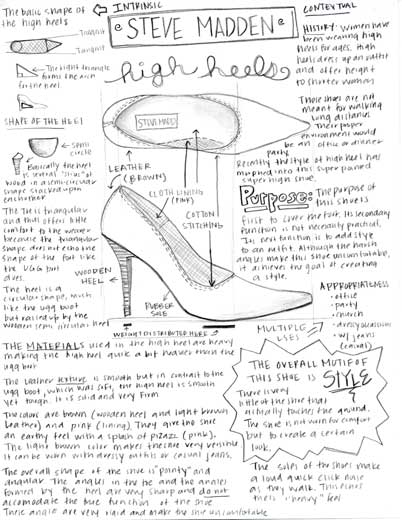 The basic shape of
the high heels
INTRINSIC
STEVE MADDEN
high heels
CONTEXTUAL
Triangular
The right triangle
forms the arch
for the heel.
SHAPE OF THE HEEL
semi
circle
Basically the heel
is several "slices" of
wood in a semi-circular
shape stacked upon
each other
The toe is triangular
and thus offers little
comfort to the wearer
because the triangular
shape does not echo the
shape of the foot like
the UGG boot
does.
The heel is a
circular shape, much
like the ugg boot
but raised up by the
wooden semi circular heel
STEVE MADD
LEATHER
(BROWN)
CLOTH LINING
(PINK)
COTTON
STITCHING
WOODEN
HEEL
RUBBER
SOLE
WEIGHT DISTRIBUTED HERE
HISTORY: Women have
been wearing high
heels for ages. High
heels dress up an outfit
and offer height
to shorter women
These shoes are not
meant for walking
long distances
Their proper
environment would
be an office or dinner
party.
Recently the style of high heel has
morphed into this super pointed
super high shoe.
Purpose: The purpose of
this shoe is
first to cover the foot. Its secondary
function is not necessarily practical.
Its next function is to add style
to an outfit. Although the harsh
angles make this shoe uncomfortable,
it achieves the goal of creating
a style.
APPROPRIATENESS
• office
• party
• church
• dressy occasions
• w/ jeans
(casual)
MULTIPLE
USES
THE MATERIALS used in the high heel are heavy
making the high heel quite a bit heavier than the
ugg boot
The leather texture is smooth but in contrast to the
ugg boot, which was soft, the high heel is smooth
yet tough. It is solid and very firm
The colors are brown (wooden heel and light brown
leather) and pink (lining). They give the shoe
an earthy feel with a splash of pizazz (pink).
The light brown color makes the shoe very versible
It can be worn with dressy outfits or casual jeans.
The overall shape of the shoe is "pointy" and
angular. The angles in the toe and the angles
formed by the heel are very sharp and do not
accomodate the true function of the shoe
These angles are very rigid and make the shoe uncomfortable
THE OVERALL MOTIF OF
THIS SHOE IS STYLE
There is very
little of the shoe that
actually touches the ground.
The shoe is not worn for comfort
but to create a certain
look.
The soles of the shoes make
a loud quick click noise
as they walk. This gives
their "heavy" feel